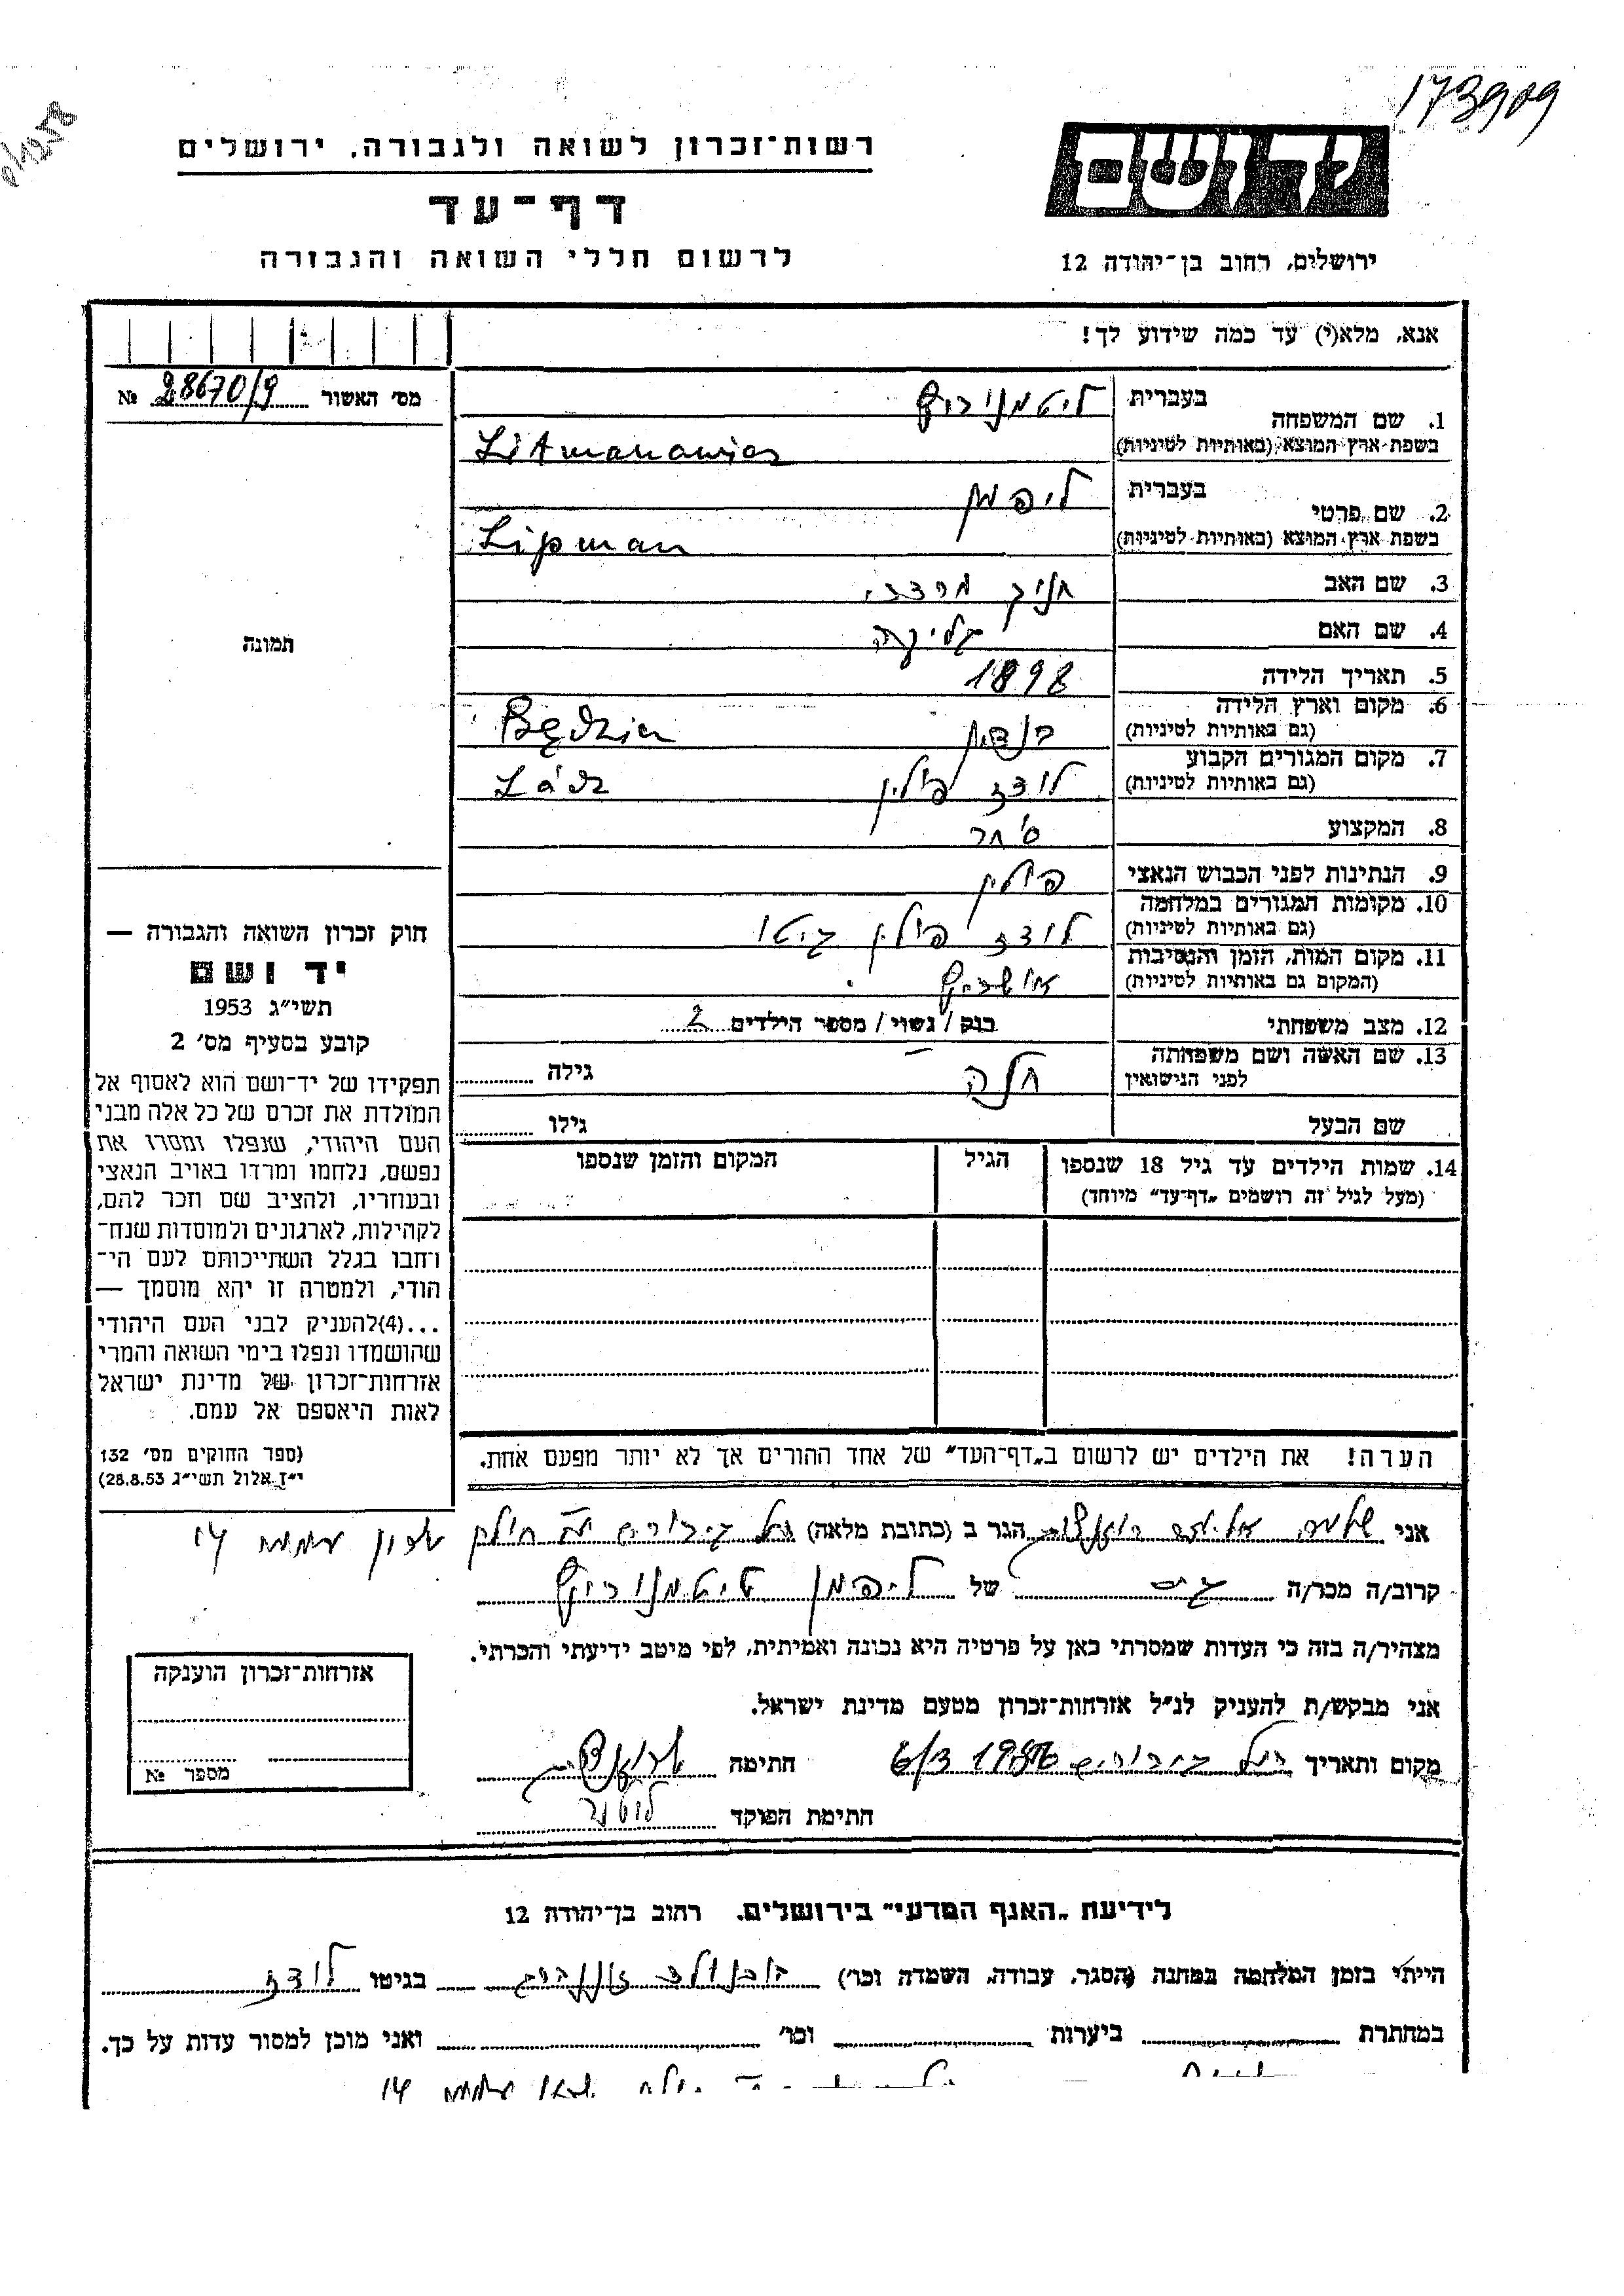 173909
רשות־זכרון לשואה ולגבורה, ירושלים
יד ושם
דף־עד
לרשום חללי השואה והגבורה
ירושלים, רחוב בן־יהודה 12
אנא, מלא(י) עד כמה שידוע לך!
מס׳ האשור 28670/9 №
1. שם המשפחה בעברית ליטמנוביץ
בשפת ארץ המוצא (באותיות לטיניות) Litmanowicz
2. שם פרטי בעברית ליפמן
בשפת ארץ המוצא (באותיות לטיניות) Lipman
3. שם האב מרדכי
4. שם האם
תמונה
5. תאריך הלידה 1898
6. מקום וארץ הלידה
(גם באותיות לטיניות) בנדין Będzin
7. מקום המגורים הקבוע
(גם באותיות לטיניות) לודז פולין Łódz
8. המקצוע סוחר
9. הנתינות לפני הכבוש הנאצי פולין
10. מקומות המגורים במלחמה
(גם באותיות לטיניות) לודז פולין גיטו
11. מקום המות, הזמן והנסיבות
(המקום גם באותיות לטיניות) אושביץ
12. מצב משפחתי רווק / נשוי / מספר הילדים 2
13. שם האשה ושם משפחתה
לפני הנישואין חנה גילה
שם הבעל גילו
14. שמות הילדים עד גיל 18 שנספו הגיל המקום והזמן שנספו
(מעל לגיל זה רושמים „דף־עד” מיוחד)
הערה! את הילדים יש לרשום ב„דף־העד” של אחד ההורים אך לא יותר מפעם אחת.
חוק זכרון השואה והגבורה —
יד ושם
תשי״ג 1953
קובע בסעיף מס׳ 2
תפקידו של יד־ושם הוא לאסוף אל
המולדת את זכרם של כל אלה מבני
העם היהודי, שנפלו ומסרו את
נפשם, נלחמו ומרדו באויב הנאצי
ובעוזריו, ולהציב שם וזכר להם,
לקהילות, לארגונים ולמוסדות שנח־
רבו בגלל השתייכותם לעם הי־
הודי, ולמטרה זו יהא מוסמך —
...(4)להעניק לבני העם היהודי
שהושמדו ונפלו בימי השואה והמרי
אזרחות־זכרון של מדינת ישראל
לאות היאספם אל עמם.
(ספר החוקים מס׳ 132
י״ז אלול תשי״ג 28.8.53)
אני הגר ב (כתובת מלאה) תל גיבורים שכון עממי 14
קרוב/ה מכר/ה גיס של ליפמן ליטמנוביץ
מצהיר/ה בזה כי העדות שמסרתי כאן על פרטיה היא נכונה ואמיתית, לפי מיטב ידיעתי והכרתי.
אני מבקש/ת להעניק לנ״ל אזרחות־זכרון מטעם מדינת ישראל.
מקום ותאריך תל גיבורים חתימה
חתימת הפוקד
אזרחות־זכרון הוענקה
מספר №
לידיעת „האגף המדעי” בירושלים, רחוב בן־יהודה 12
הייתי בזמן המלחמה במחנה (הסגר, עבודה, השמדה וכו׳) בגיטו לודז
במחתרת ביערות וכו׳ ואני מוכן למסור עדות על כך.
עממי 14